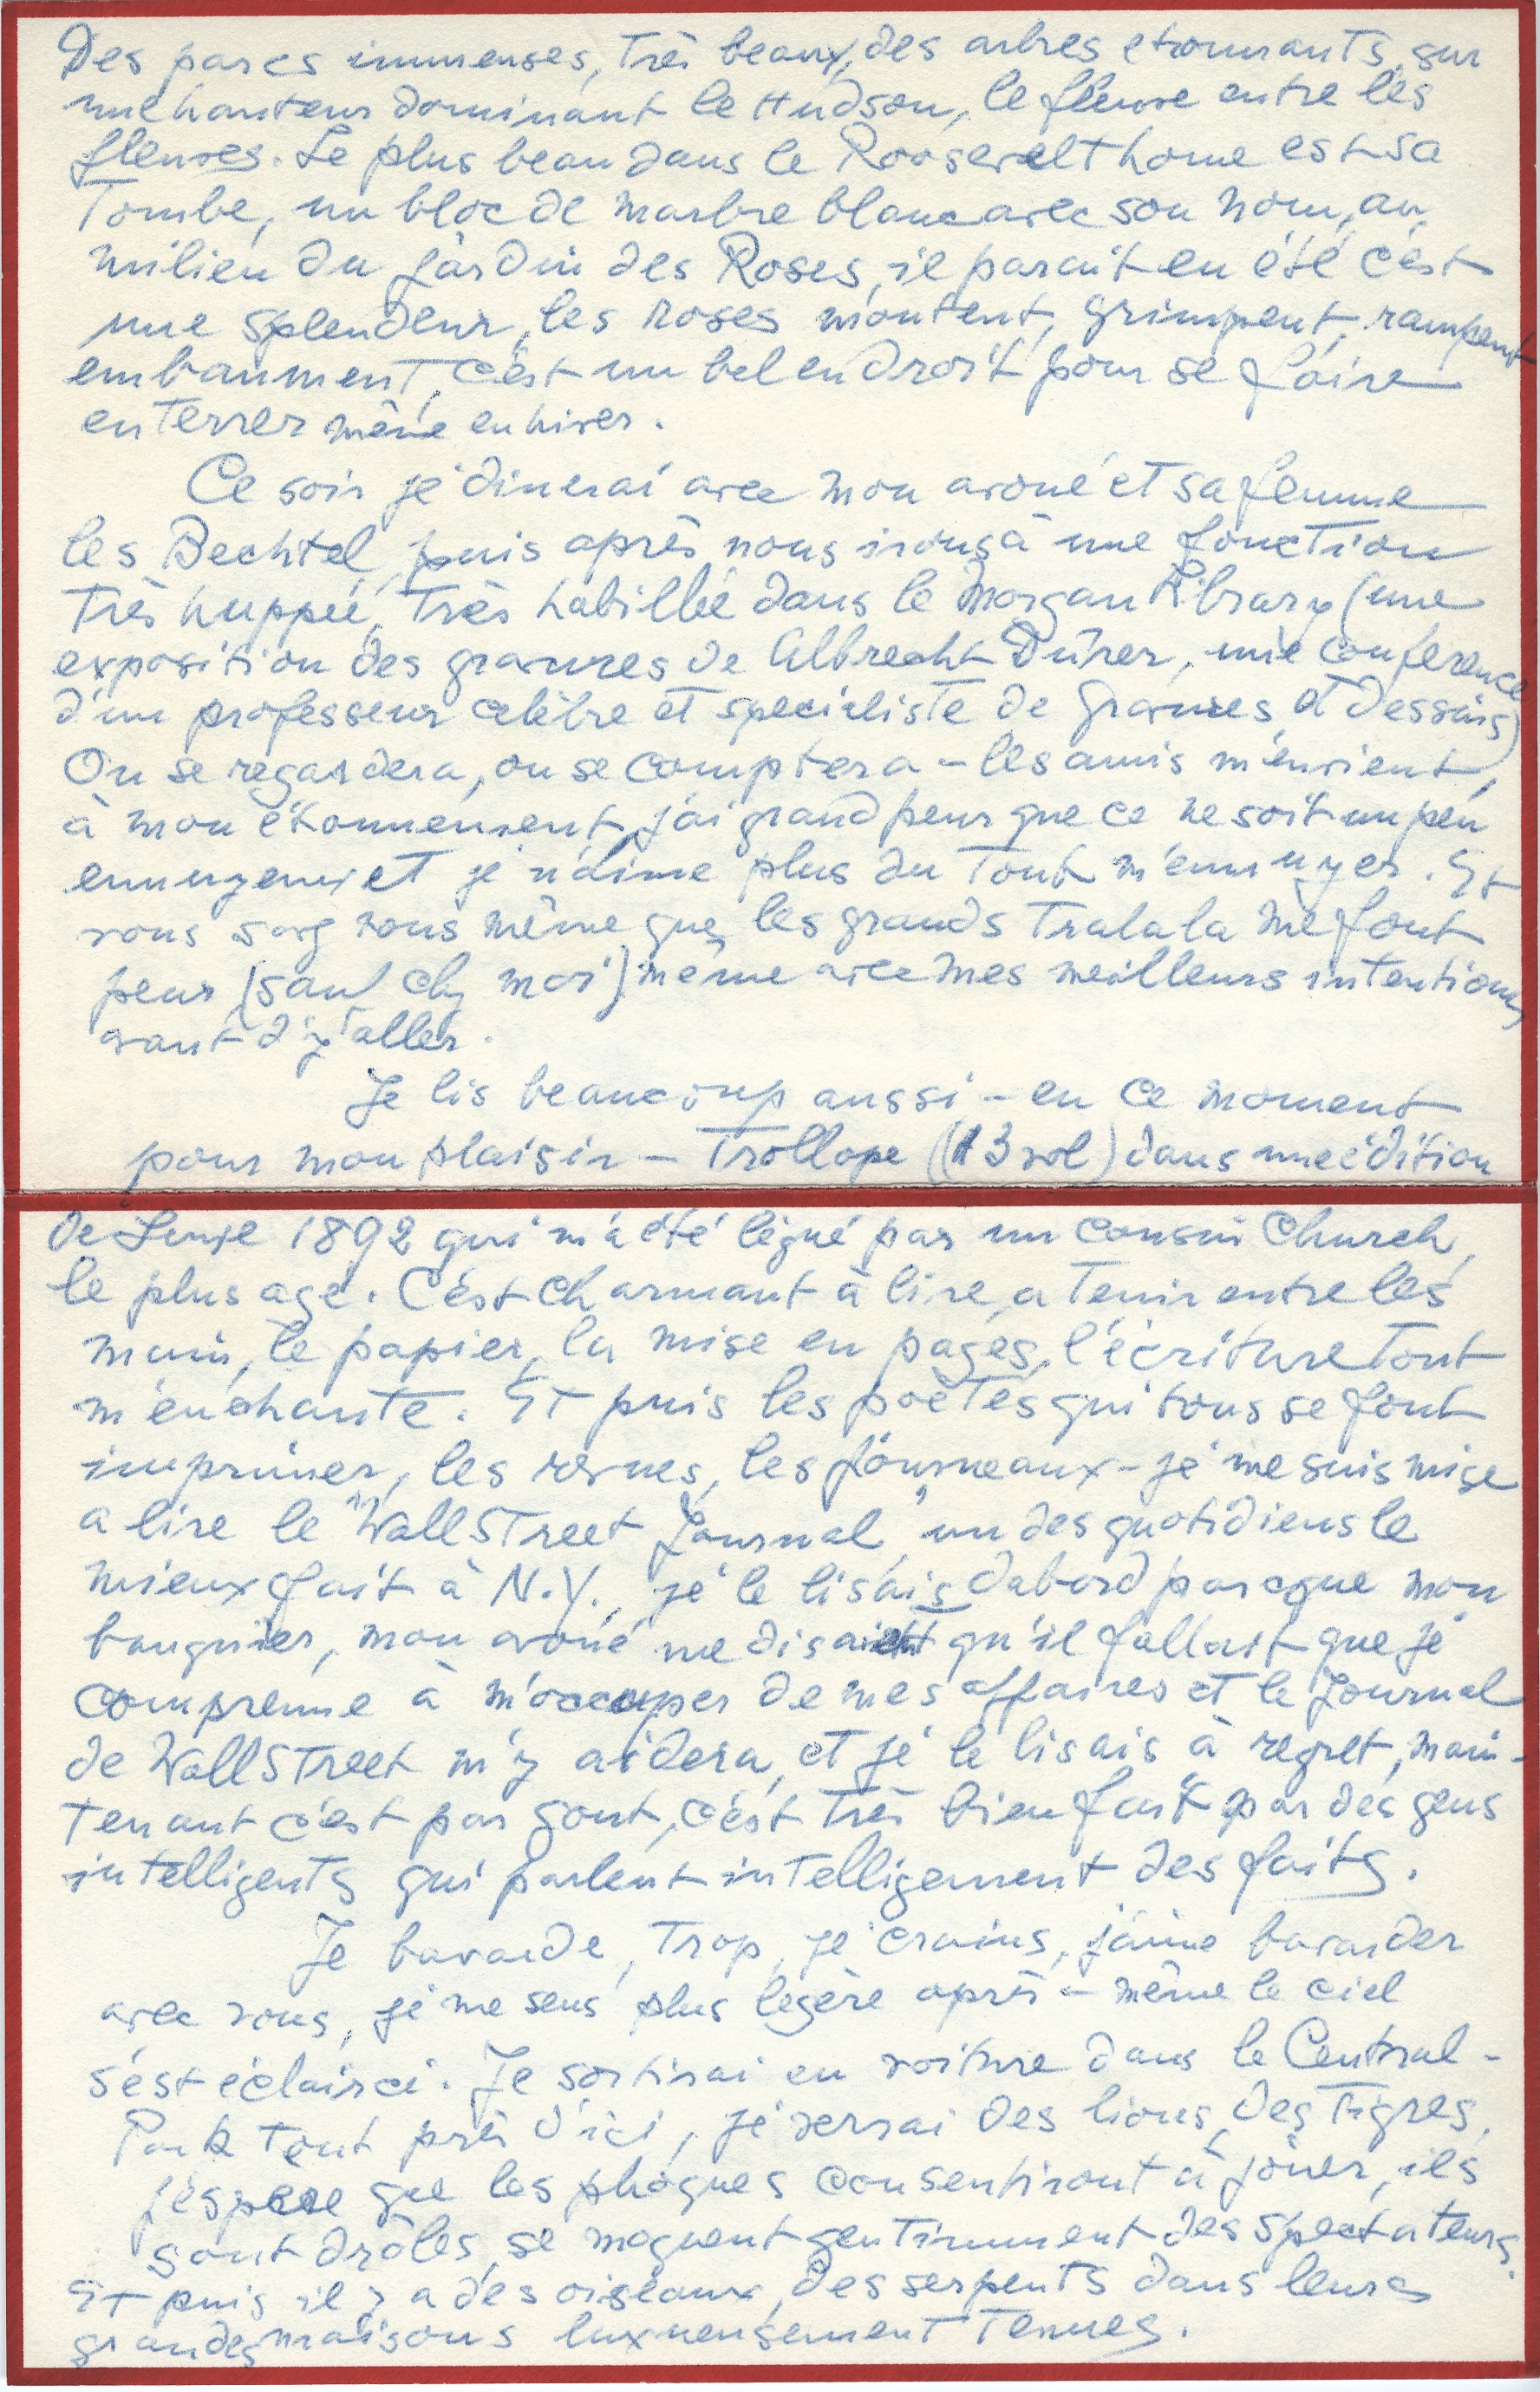 Des parcs immenses, très beaux, des arbres etonnants, sur
une hauteur dominant le Hudson, le fleuve entre les
fleuves. Le plus beau dans le Roosevelt home est sa
Tombe, un bloc de marbre blanc avec son nom, au
milieu du jardin des Roses, il parait en été c'est
une splendeur, les roses montent, grimpent, rampent
embaument, c'est un bel endroit pour se faire
enterrer même en hiver.
Ce soir je dinerai avec mon avoué et sa femme
les Bechtel, puis après nous irons à une fonction
très huppée, très habillée dans le Morgan Library (une
exposition des gravures de Albrecht Dürer, une conference
d'un professeur celèbre et specialiste de gravures et dessins)
On se regardera, on se comptera – les amis m'envient,
à mon étonnement, j'ai grand peur que ce ne soit un peu
ennuyeux et je n'aime plus du tout m'ennuyer. Et
vous savez vous même que les grands Tralala me font
peur (sauf chez moi) même avec mes meilleurs intentions
avant d'y aller.
Je lis beaucoup aussi – en ce moment
pour mon plaisir – Trollope (13 vol) dans une édition
de Luxe 1892 qui m'a été légué par un cousin Church,
le plus agé. C'est charmant à lire, a tenir entre les
main, le papier, la mise en pages, l'écriture tout
m'enchante. Et puis les poètes qui tous se font
imprimer, les revues, les journeaux – je me suis mise
a lire le "Wall Street Journal" un des quotidiens le
mieux fait à N.Y., je le lisais dabord parcque mon
banquier, mon avoué me disaient qu'il fallait que je
comprenne à m'occuper de mes affaires et le Journal
de Wall Street m'y aidera, et je le lisais à regret, main-
tenant c'est par gout, c'est très bien fait par des gens
intelligents qui parlent intelligement des faits.
Je bavarde, trop, je crains, j'aime bavarder
avec vous, je me sens plus légère après – même le ciel
s'est éclairci. Je sortirai en voiture dans le Central-
Park tout près d'ici, je verrai des lions, des Tigres,
j'espère que les phoques consentiront à jouer, ils
sont drôles, se moquent gentimment des spectateurs.
Et puis il y a des oiseaux, des serpents dans leurs
grandes maisons luxueusement tenues.